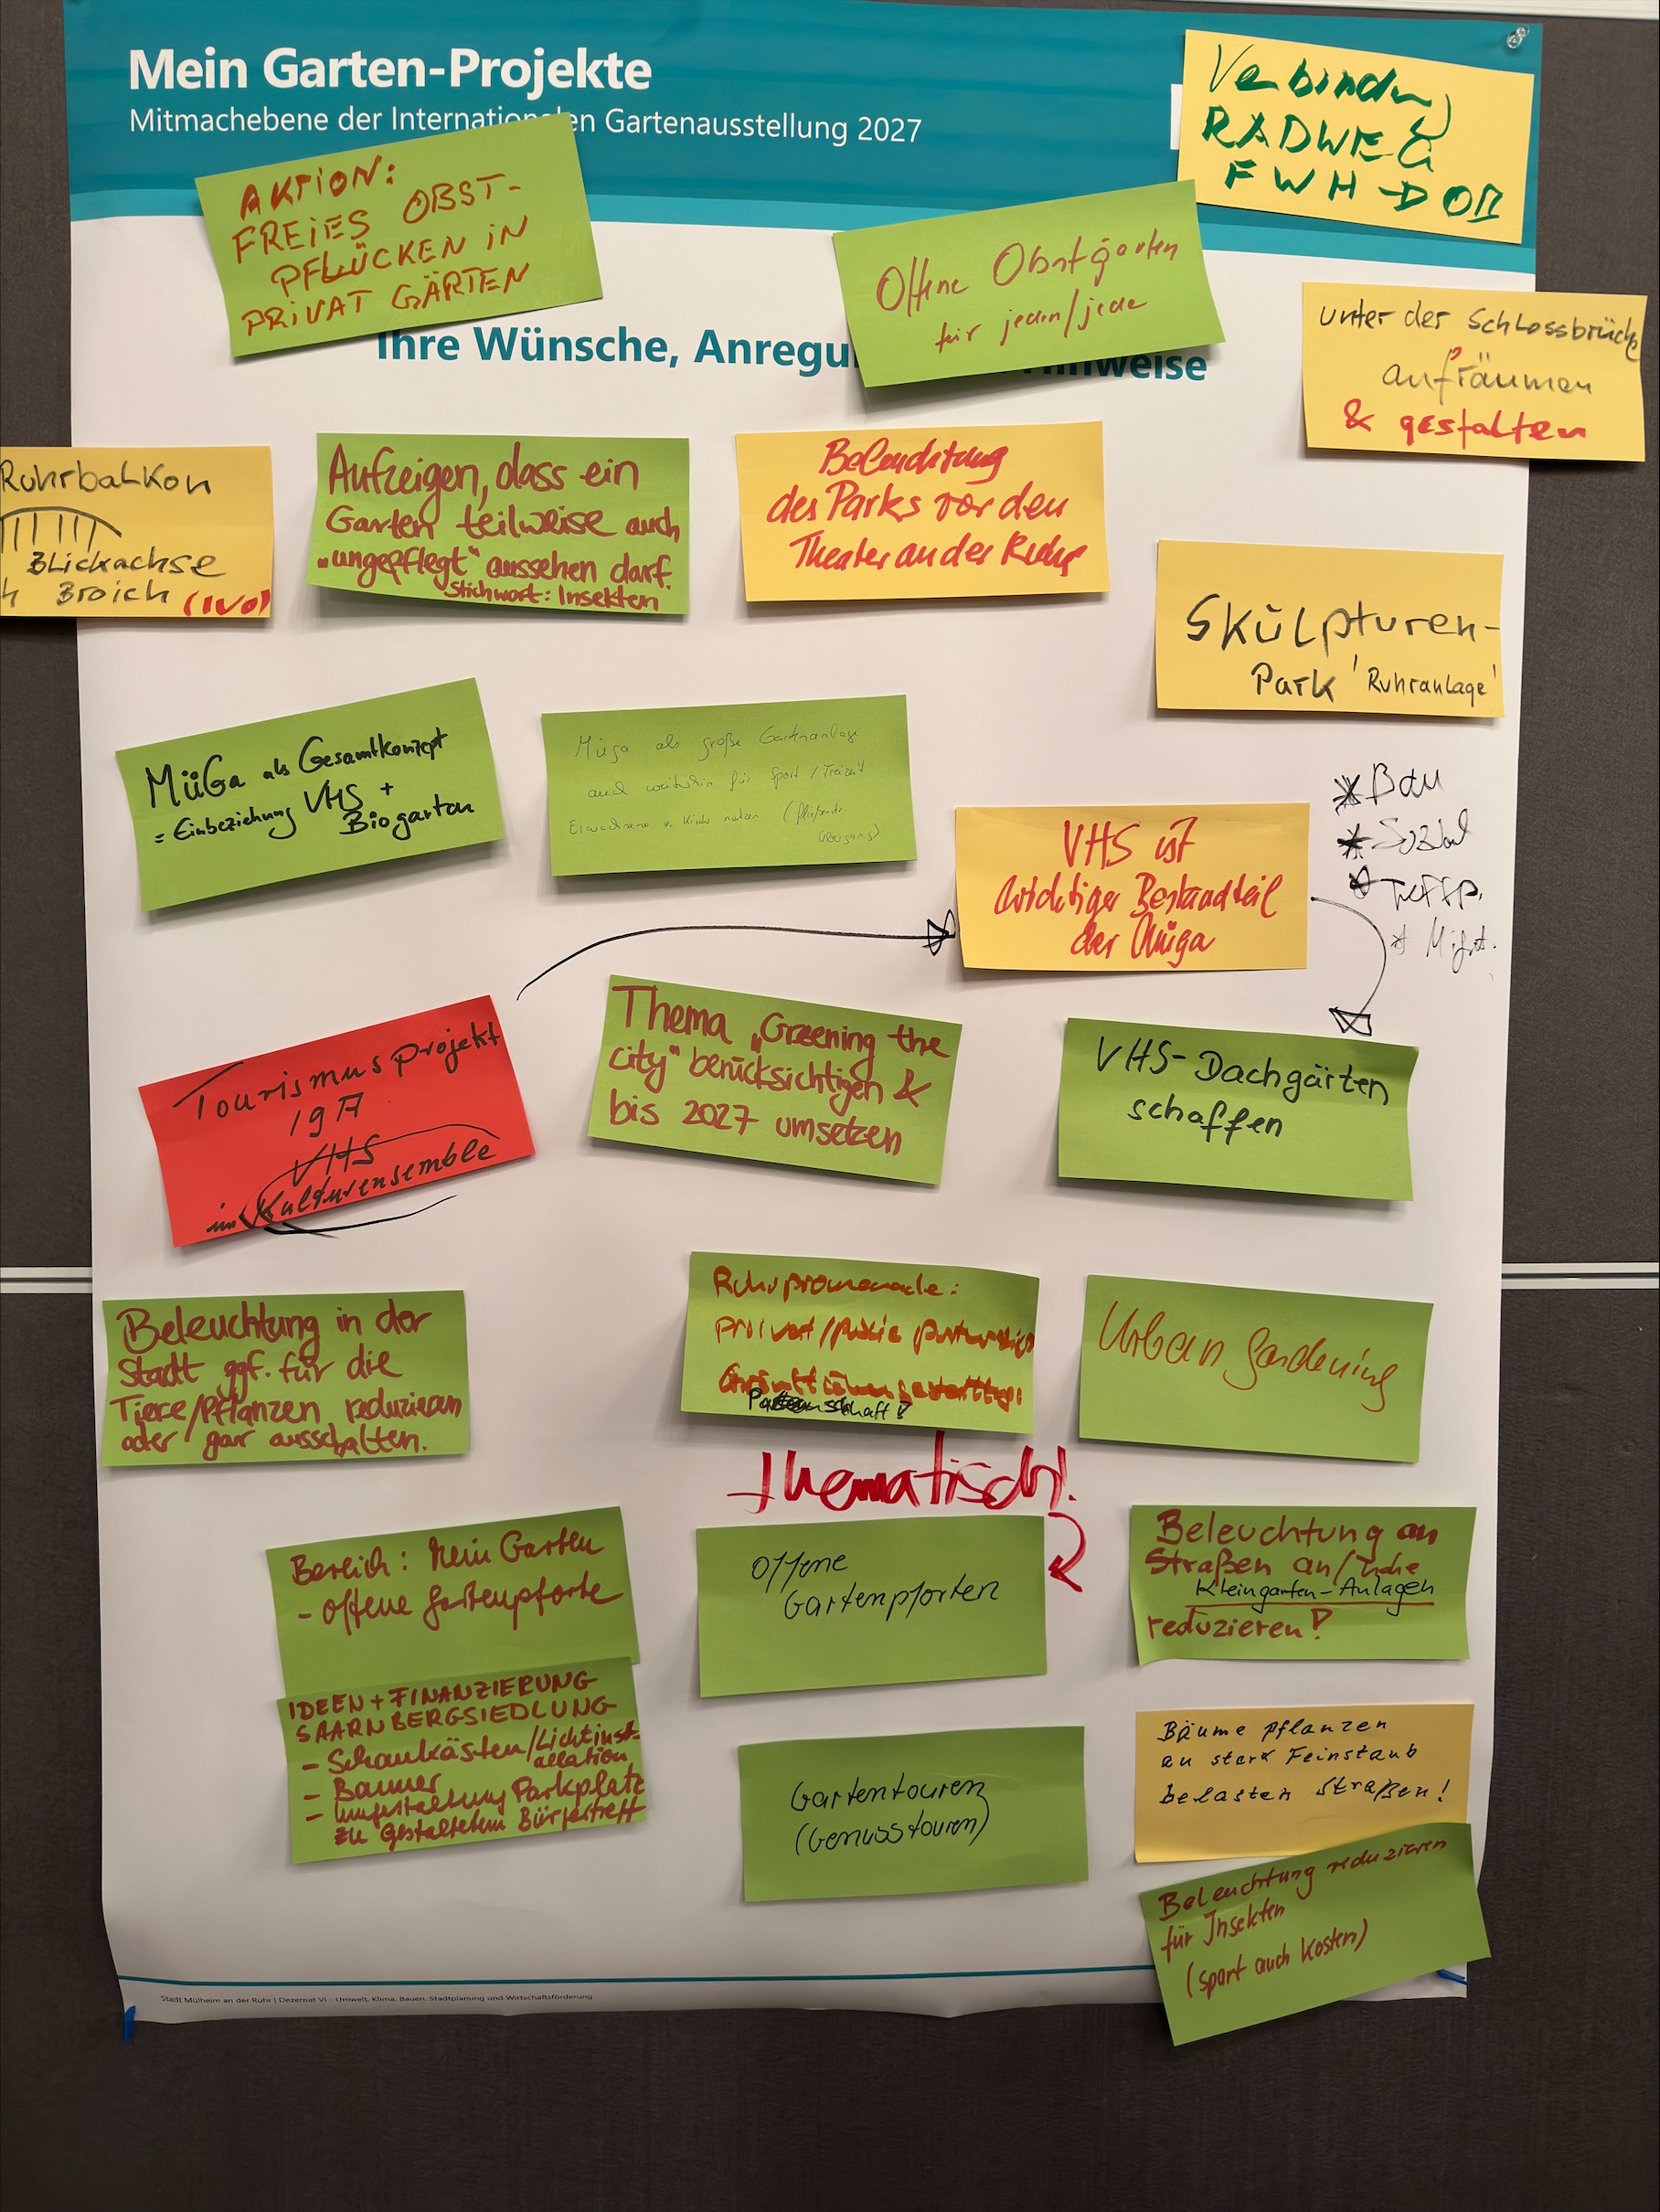 Mein Garten-Projekte
Mitmachebene der Internationalen Gartenausstellung 2027
Verbindung
RADWEG
FWH-DOR
AKTION:
FREIES OBST-
PFLÜCKEN IN
PRIVAT GÄRTEN
Offene Obstgärten
für jeden/jede
Ihre Wünsche, Anregu
Hinweise
unter der Schlossbrücke
aufräumen
& gestalten
Ruhrbalkon
Blickachse
Broich
Aufzeigen, dass ein
Garten teilweise auch
„ungepflegt“ aussehen darf.
Stichwort: Insekten
Beleuchtung
des Parks vor den
Theater an der Ruhr
Skulpturen-
Park 'Ruhranlage'
MüGa als Gesamtkonzept
= Einbeziehung VHS +
Biogarten
Müga als große Gartenanlage
auch weiterhin für Sport / Freizeit
Erwachsene u. Kinder nutzen (fließender
Übergang)
* Bau
* Sozial
* Treffp.
* Migrat.
VHS ist
wichtiger Bestandteil
der Müga
Tourismusprojekt
VHS
im Kulturensemble
Thema „Greening the
city“ berücksichtigen &
bis 2027 umsetzen
VHS-Dachgärten
schaffen
Beleuchtung in der
Stadt ggf. für die
Tiere/Pflanzen reduzieren
oder gar ausschalten.
Ruhrpromenade:
privat/
Patenschaft?
Urban Gardening
Thematisch!
Bereich: Mein Garten
- offene Gartenpforte
Offene
Gartenpforten
Beleuchtung an
Straßen an/nahe
Kleingarten-Anlagen
reduzieren!
IDEEN + FINANZIERUNG
SAARNBERGSIEDLUNG
- Schaukästen/Lichtinst-
allation
- Banner
- Umgestaltung Parkplatz
zu gestaltetem Bürgertreff
Gartentouren
(Genusstouren)
Bäume pflanzen
an stark Feinstaub
belasten Straßen!
Beleuchtung reduzieren
für Insekten
(spart auch Kosten)
Stadt Mülheim an der Ruhr | Dezernat VI - Umwelt, Klima, Bauen, Stadtplanung und Wirtschaftsförderung